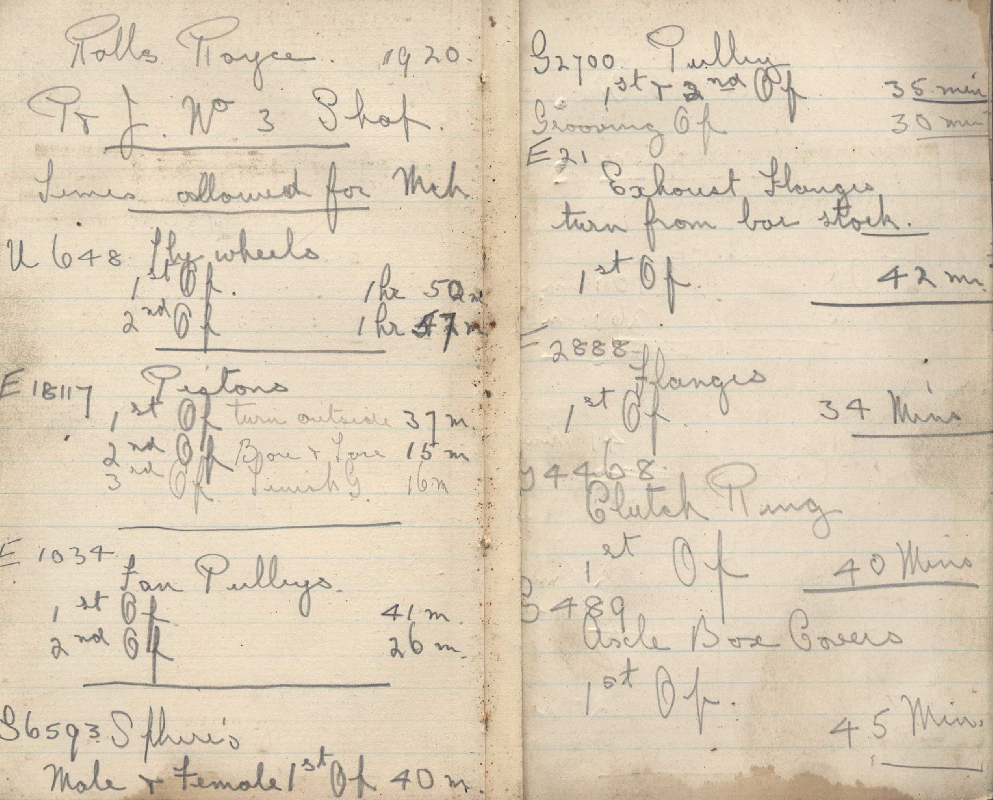 Rolls Royce. 1920.
Pr J. No 3 Shop.
Times allowed for Mch
U 648 Fly wheels
1st Op. 1hr 50m
2nd Op 1hr 47m
E 18117 Pistons
1st Op turn outside 37m
2nd Op Bore & Face 15m
3rd Op Finish G. 16m
E 1034
Fan Pulleys.
1st Op. 41m.
2nd Op 26m.
S6593 Spheris
Male & Female 1st Op 40m.
G2700 Pulley
1st & 2nd Op 35 min
Grooving Op 30 min
E 21
Exhoust Flanges
turn from bar stock.
1st Op. 42 m.
E 2888
Flanges
1st Op 34 Mins
4468
Clutch Ring
1st Op 40 Mins
489
Axle Box Covers
1st Op.
45 Min.